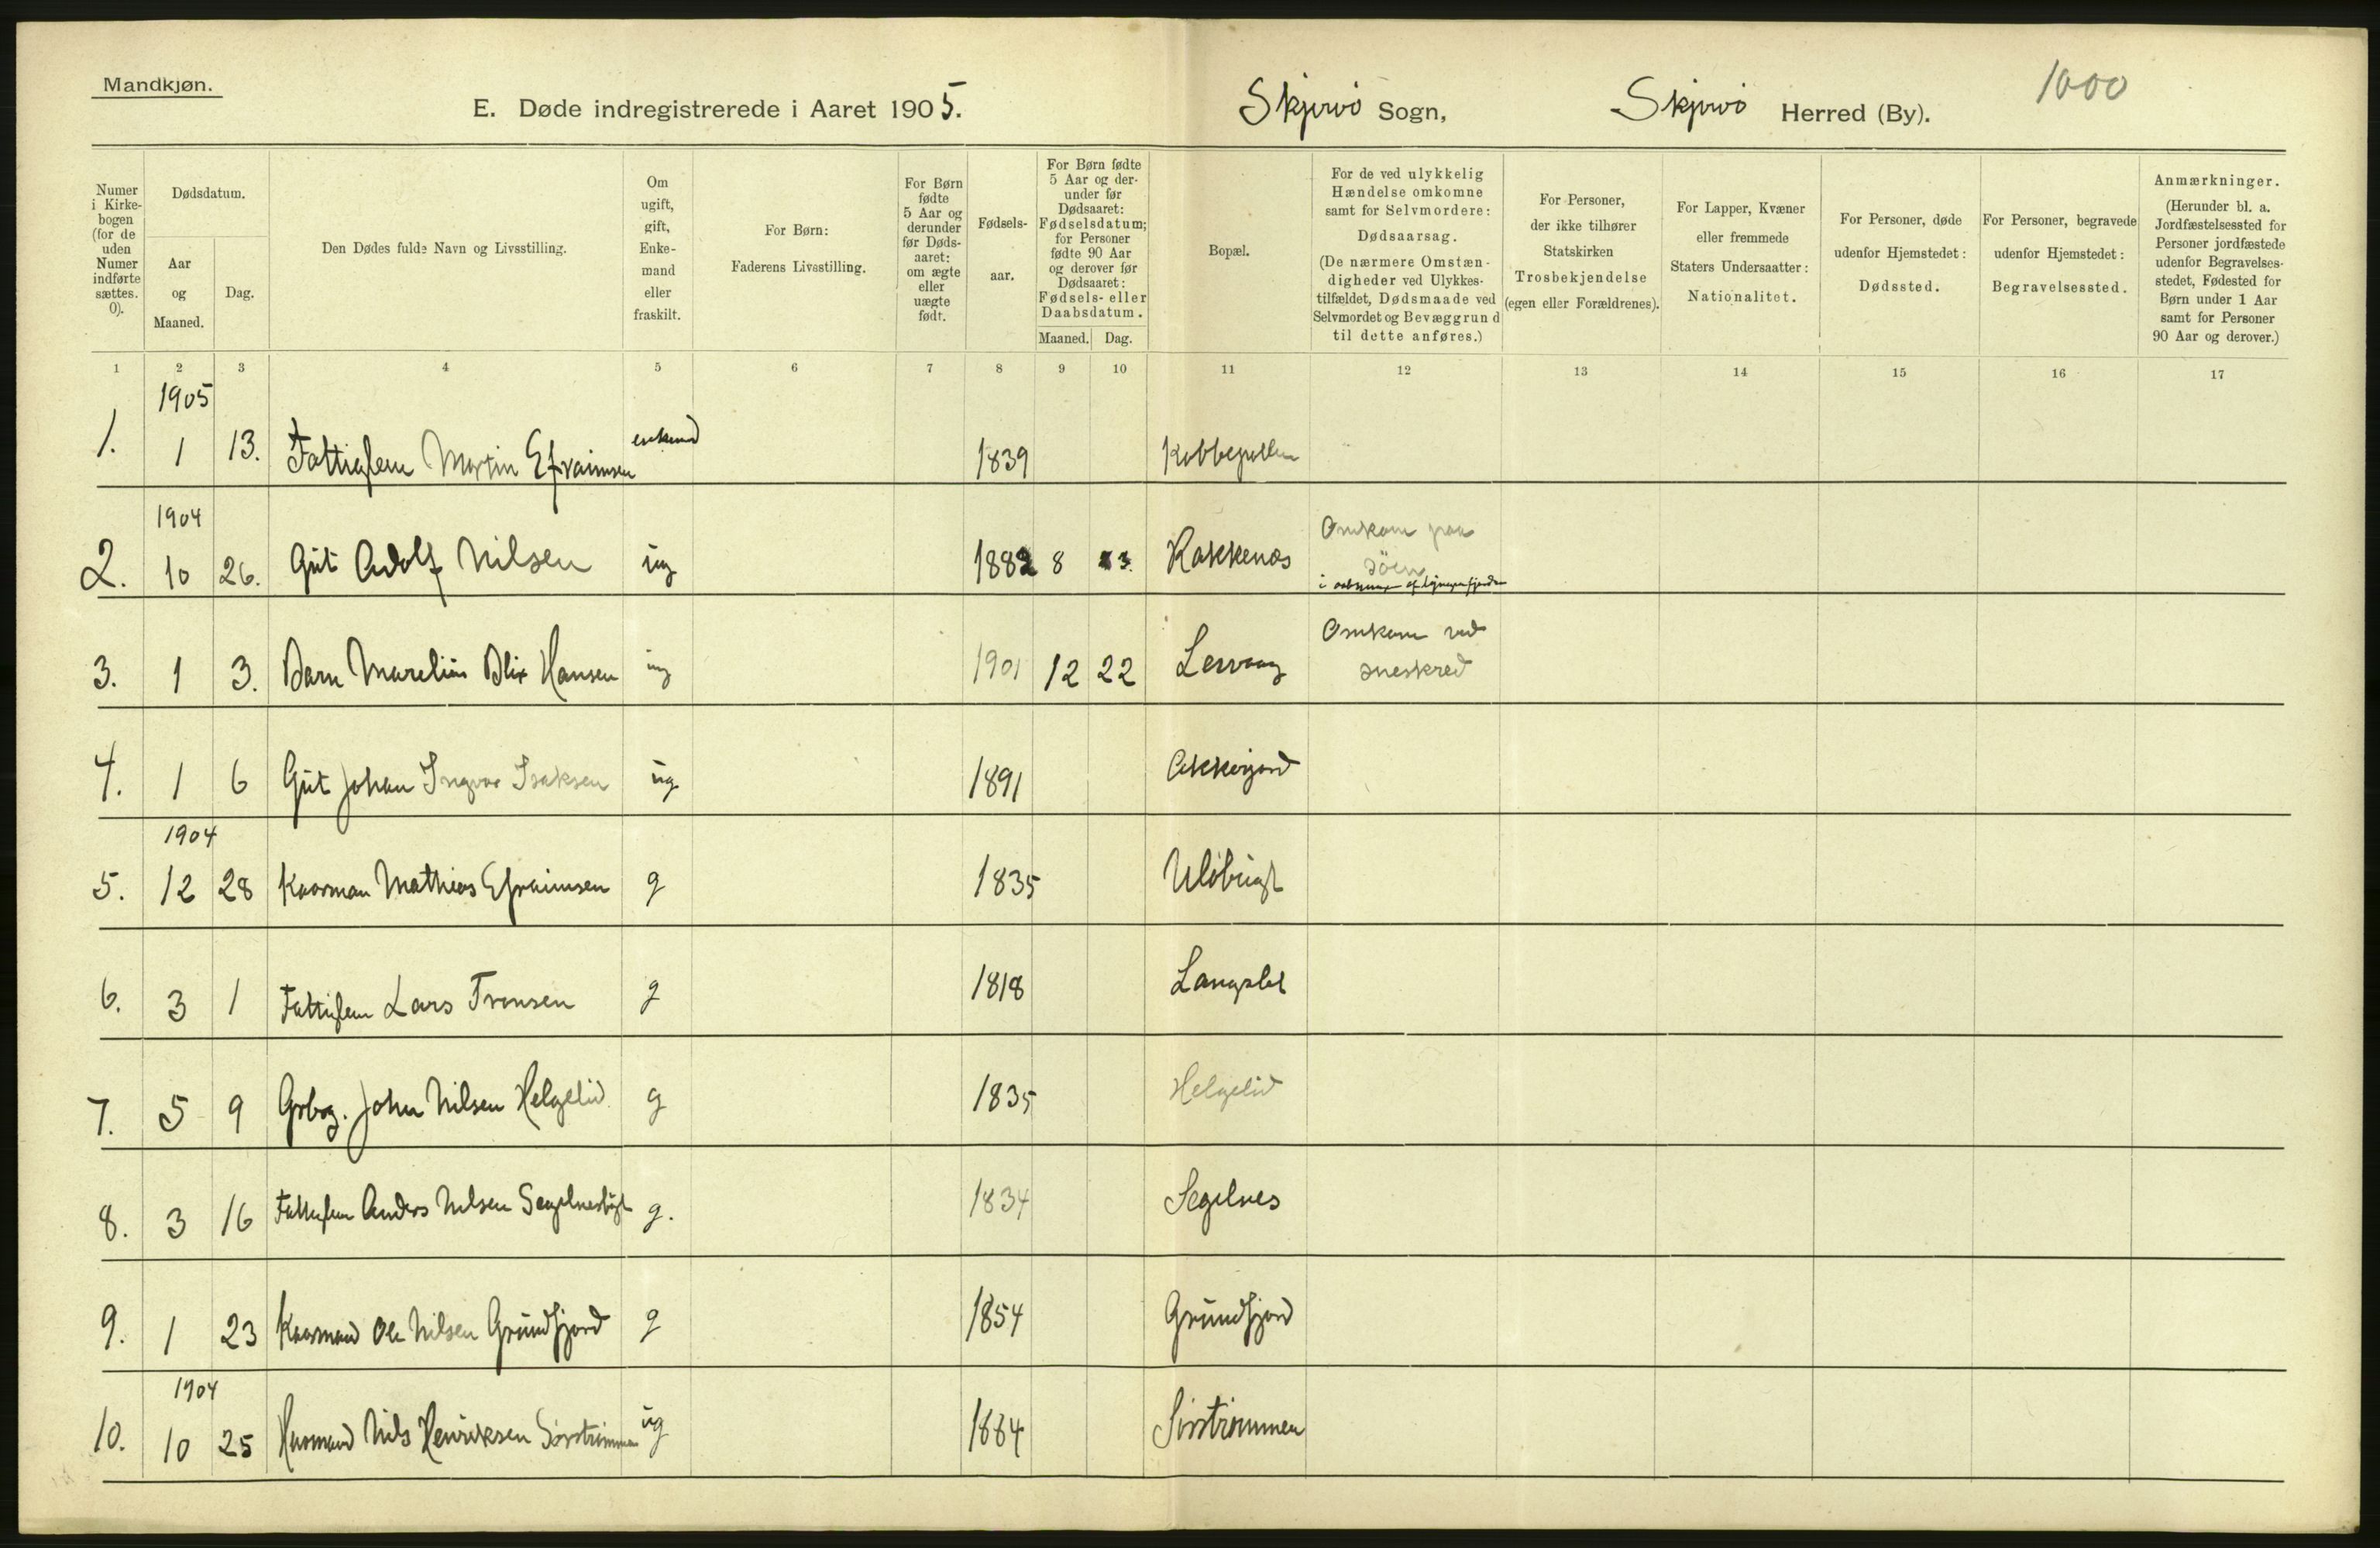 Mandkjøn.
1000
E. Døde indregistrerede i Aaret 1905. Skjervö Sogn, Skjervö Herred (By).
Numer i Kirke-bogen (for de uden Numer indførte sættes. 0).
Dødsdatum.
Aar og Maaned.
Dag.
Den Dødes fulde Navn og Livsstilling.
Om ugift, gift, Enke-mand eller fraskilt.
For Børn:
Faderens Livsstilling.
For Børn fødte 5 Aar og derunder før Døds-aaret: om ægte eller uægte født.
Fødsels-aar.
For Børn fødte 5 Aar og der-under før Dødsaaret: Fødselsdatum; for Personer fødte 90 Aar og derover før Dødsaaret: Fødsels- eller Daabsdatum.
Maaned. Dag.
Bopæl.
For de ved ulykkelig Hændelse omkomne samt for Selvmordere: Dødsaarsag. (De nærmere Omstæn-digheder ved Ulykkes-tilfældet, Dødsmaade ved Selvmordet og Bevæggrund til dette anføres.)
For Personer, der ikke tilhører Statskirken Trosbekjendelse (egen eller Forældrenes).
For Lapper, Kvæner eller fremmede Staters Undersaatter: Nationalitet.
For Personer, døde udenfor Hjemstedet: Dødssted.
For Personer, begravede udenfor Hjemstedet: Begravelsessted.
Anmærkninger. (Herunder bl. a. Jordfæstelsessted for Personer jordfæstede udenfor Begravelses-stedet, Fødested for Børn under 1 Aar samt for Personer 90 Aar og derover.)
1 2 3 4 5 6 7 8 9 10 11 12 13 14 15 16 17
1905
1. 1 13. Fattiglem Martin Efraimsen enkemd 1839 Kobbepollen
1904
2. 10 26. Gut Adolf Nilsen ug 1882 8 3. Rakkenæs Omkom paa
söen
i af Lyngenfjorden
3. 1 3. Barn Marelius Blix Hansen ug 1901 12 22 Lervaag Omkom ved
sneskred
4. 1 6 Gut Johan Ingvar Isaksen ug 1891 Akkerjord
1904
5. 12 28 Kaarman Mathias Efraimsen g 1835 Ulöbugt
6. 3 1 Fattiglem Lars Tronsen g 1818 Langslet
7. 5 9 Grbrg. John Nilsen Helgelid g 1835 Helgelid
8. 3 16 Fattiglem Anders Nilsen Segelnesbugt g. 1834 Segelnes
9. 1 23 Kaarmand Ole Nilsen Grundfjord g 1854 Grundfjord
1904
10. 10 25 Husmand Nils Henriksen Sörströmmen ug 1884 Sörströmmen